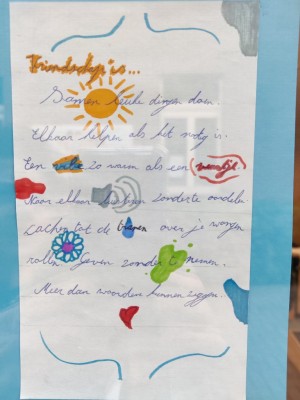 Vriendschap is...
Samen leuke dingen doen.
Elkaar helpen als het nodig is.
Een zo warm als een
Naar elkaar luisteren zonder te oordelen
Lachen tot de tranen over je wangen
rollen. Geven zonder te nemen.
Meer dan woorden kunnen zeggen.